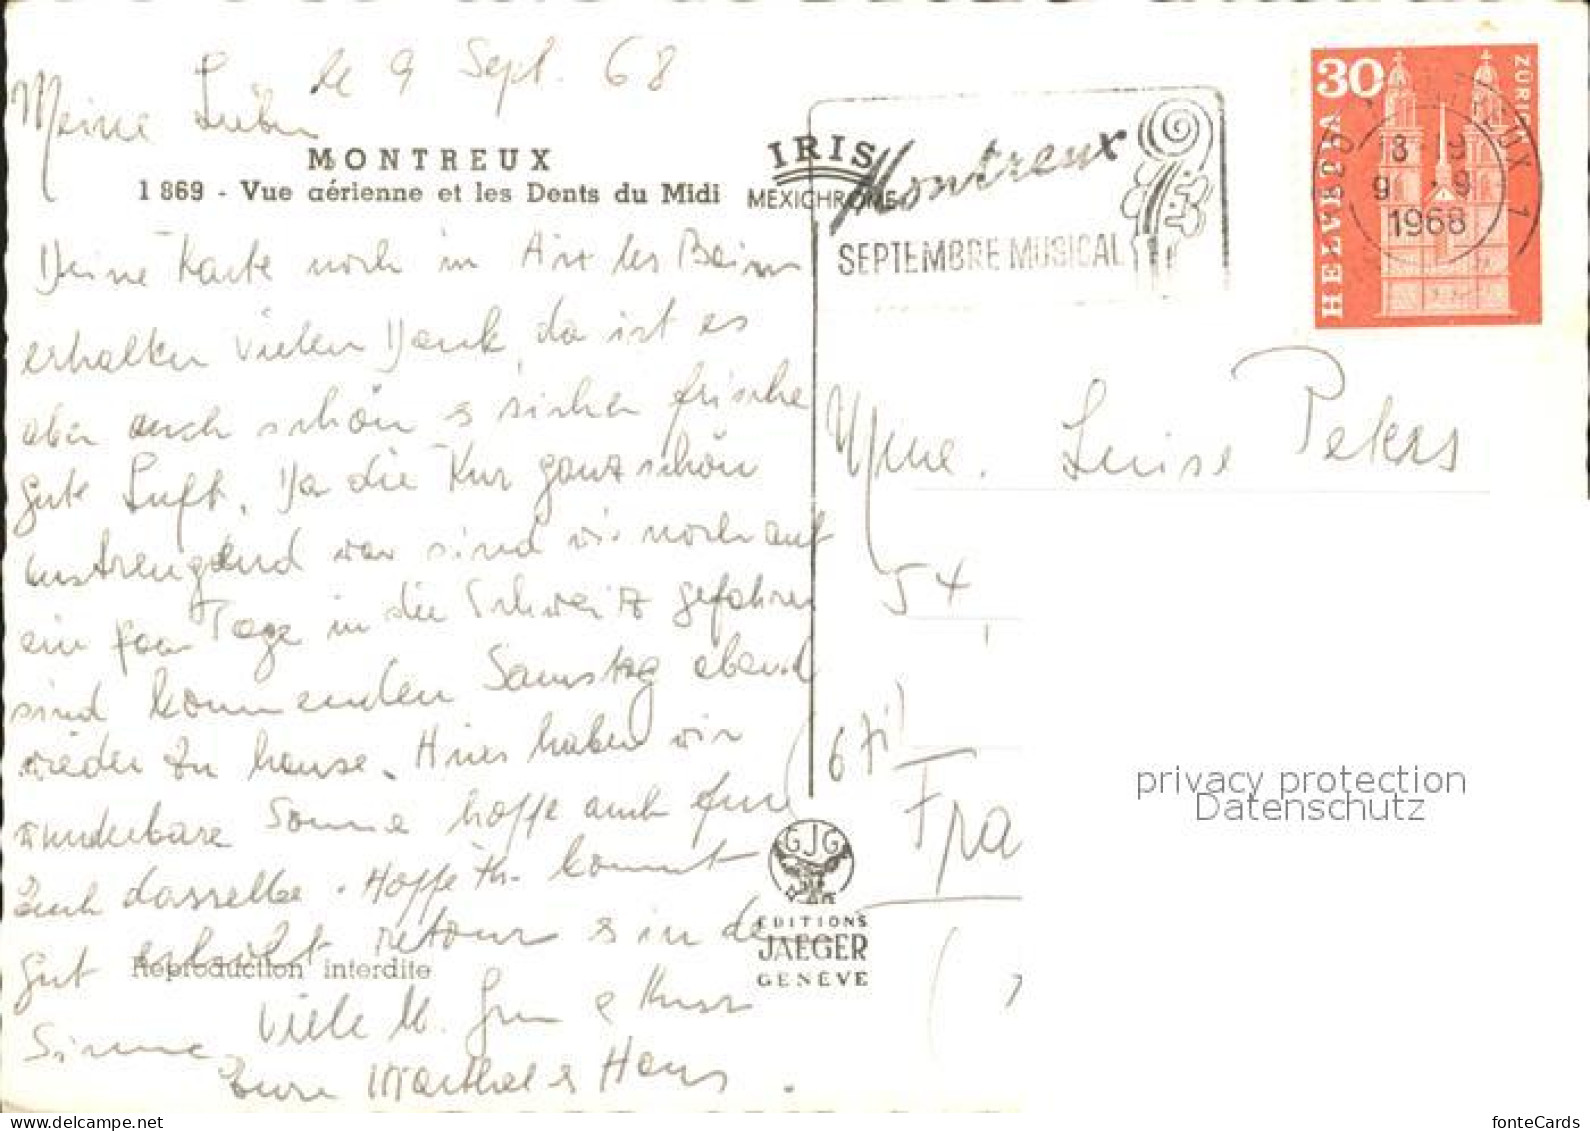 le 9 Sept. 68
Meine Lieben
MONTREUX
1869 - Vue aérienne et les Dents du Midi
IRIS
MEXICHROME
Montreux
SEPTEMBRE MUSICAL
30
HELVETIA
ZÜRICH
MONTREUX 1
18 - 19
9 - 9
1968
Deine Karte noch in Aix les Bains
erhalten vielen Dank, da ist es
aber auch schön & sicher frische
gute Luft. Da die Kur ganz schön
anstrengend war sind wir noch auf
ein paar Tage in die Schweiz gefahren
sind kommenden Samstag abend
wieder zu hause. Hier haben wir
wunderbare Sonne hoffe auch für
Euch dasselbe. Hoffe Th. kommt
gut erholt retour & in de
Sinne, viele lb. Grüsse & Kuss
Eure Marthel & Hans.
Mme. Luise Peters
54
67
Fra
GJG
EDITIONS
JAEGER
GENÈVE
Reproduction interdite
privacy protection
Datenschutz
www.delcampe.net
fonteCards